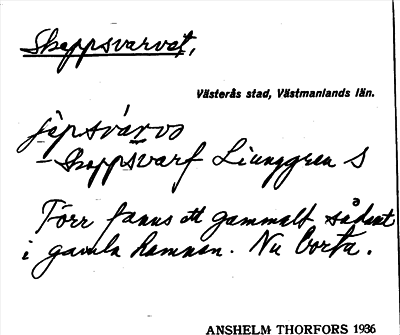 Skeppsvarvet,
Västerås stad, Västmanlands län.
– Skeppsvarf Ljunggren S
Förr fanns ett gammalt sådant
i gamla hamnen. Nu borta.
ANSHELM THORFORS 1936